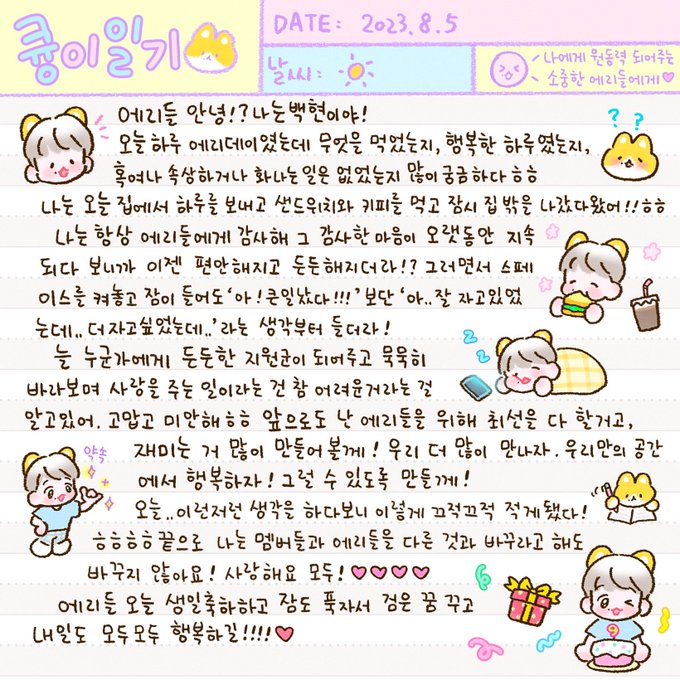 큥이일기
DATE: 2023.8.5
날씨:
나에게 원동력 되어주는
소중한 에리들에게♡
에리들 안녕!? 나는백현이야!
오늘하루 에리데이였는데 무엇을 먹었는지, 행복한 하루였는지,
? ?
혹여나 속상하거나 화나는일은 없었는지 많이 궁금하다ㅎㅎ
나는 오늘 집에서 하루를 보내고 샌드위치와 커피를 먹고 잠시 집밖을 나갔다왔어!!ㅎㅎ
나는 항상 에리들에게 감사해 그 감사한 마음이 오랫동안 지속
되다 보니까 이젠 편안해지고 든든해지더라!? 그러면서 스페
이스를 켜놓고 잠이 들어도 '아! 큰일났다!!!' 보단 '아..잘 자고있었
는데.. 더자고싶었는데..' 라는 생각부터 들더라!
z z
늘 누군가에게 든든한 지원군이 되어주고 묵묵히
바라보며 사랑을 주는 일이라는 건 참 어려운거라는 걸
알고있어. 고맙고 미안해ㅎㅎ 앞으로도 난 에리들을 위해 최선을 다 할거고,
약속
재미는 거 많이 만들어 볼게! 우리 더 많이 만나자. 우리만의 공간
에서 행복하자! 그럴 수 있도록 만들게!
오늘..이런저런 생각을 하다보니 이렇게 끄적끄적 적게됐다!
ㅎㅎㅎㅎ끝으로 나는 멤버들과 에리들을 다른 것과 바꾸라고 해도
바꾸지 않아요! 사랑해요 모두!♥♥♥♥
에리들 오늘 생일축하하고 잠도 푹자서 검은 꿈 꾸고
내일도 모두모두 행복하길!!!!♥
9